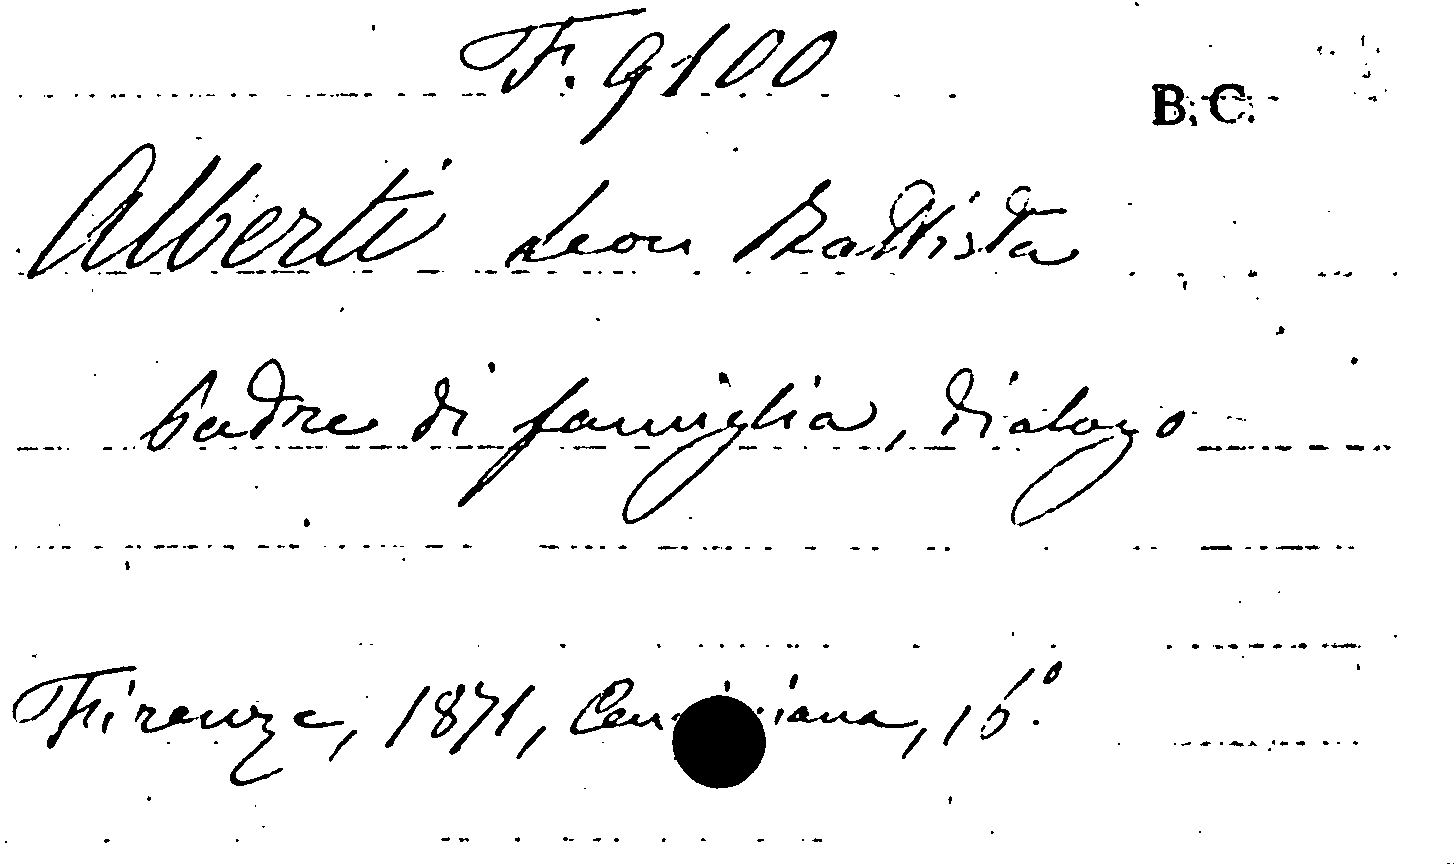 F. 9100
B. C.
Alberti Leon Battista
Padre di famiglia, dialogo
Firenze, 1871, 16.º